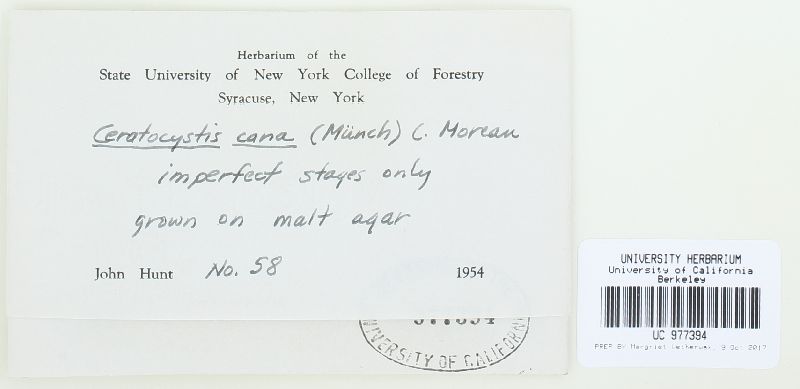 Herbarium of the
State University of New York College of Forestry
Syracuse, New York
Ceratocystis cana (Münch) C. Moreau
imperfect stages only
grown on malt agar
John Hunt No. 58 1954
977394
UNIVERSITY OF CALIFORNI
UNIVERSITY HERBARIUM
University of California
Berkeley
UC 977394
PREP BY Margriet 9 Oct 2017